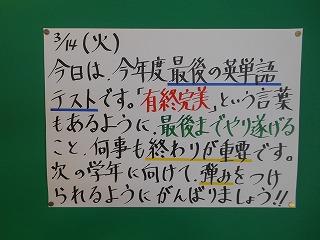 3/14(火)
今日は、今年度最後の英単語
テストです。「有終完美」という言葉
もあるように、最後までやり遂げる
こと、何事も終わりが重要です。
次の学年に向けて、弾みをつけ
られるようにがんばりましょう!!